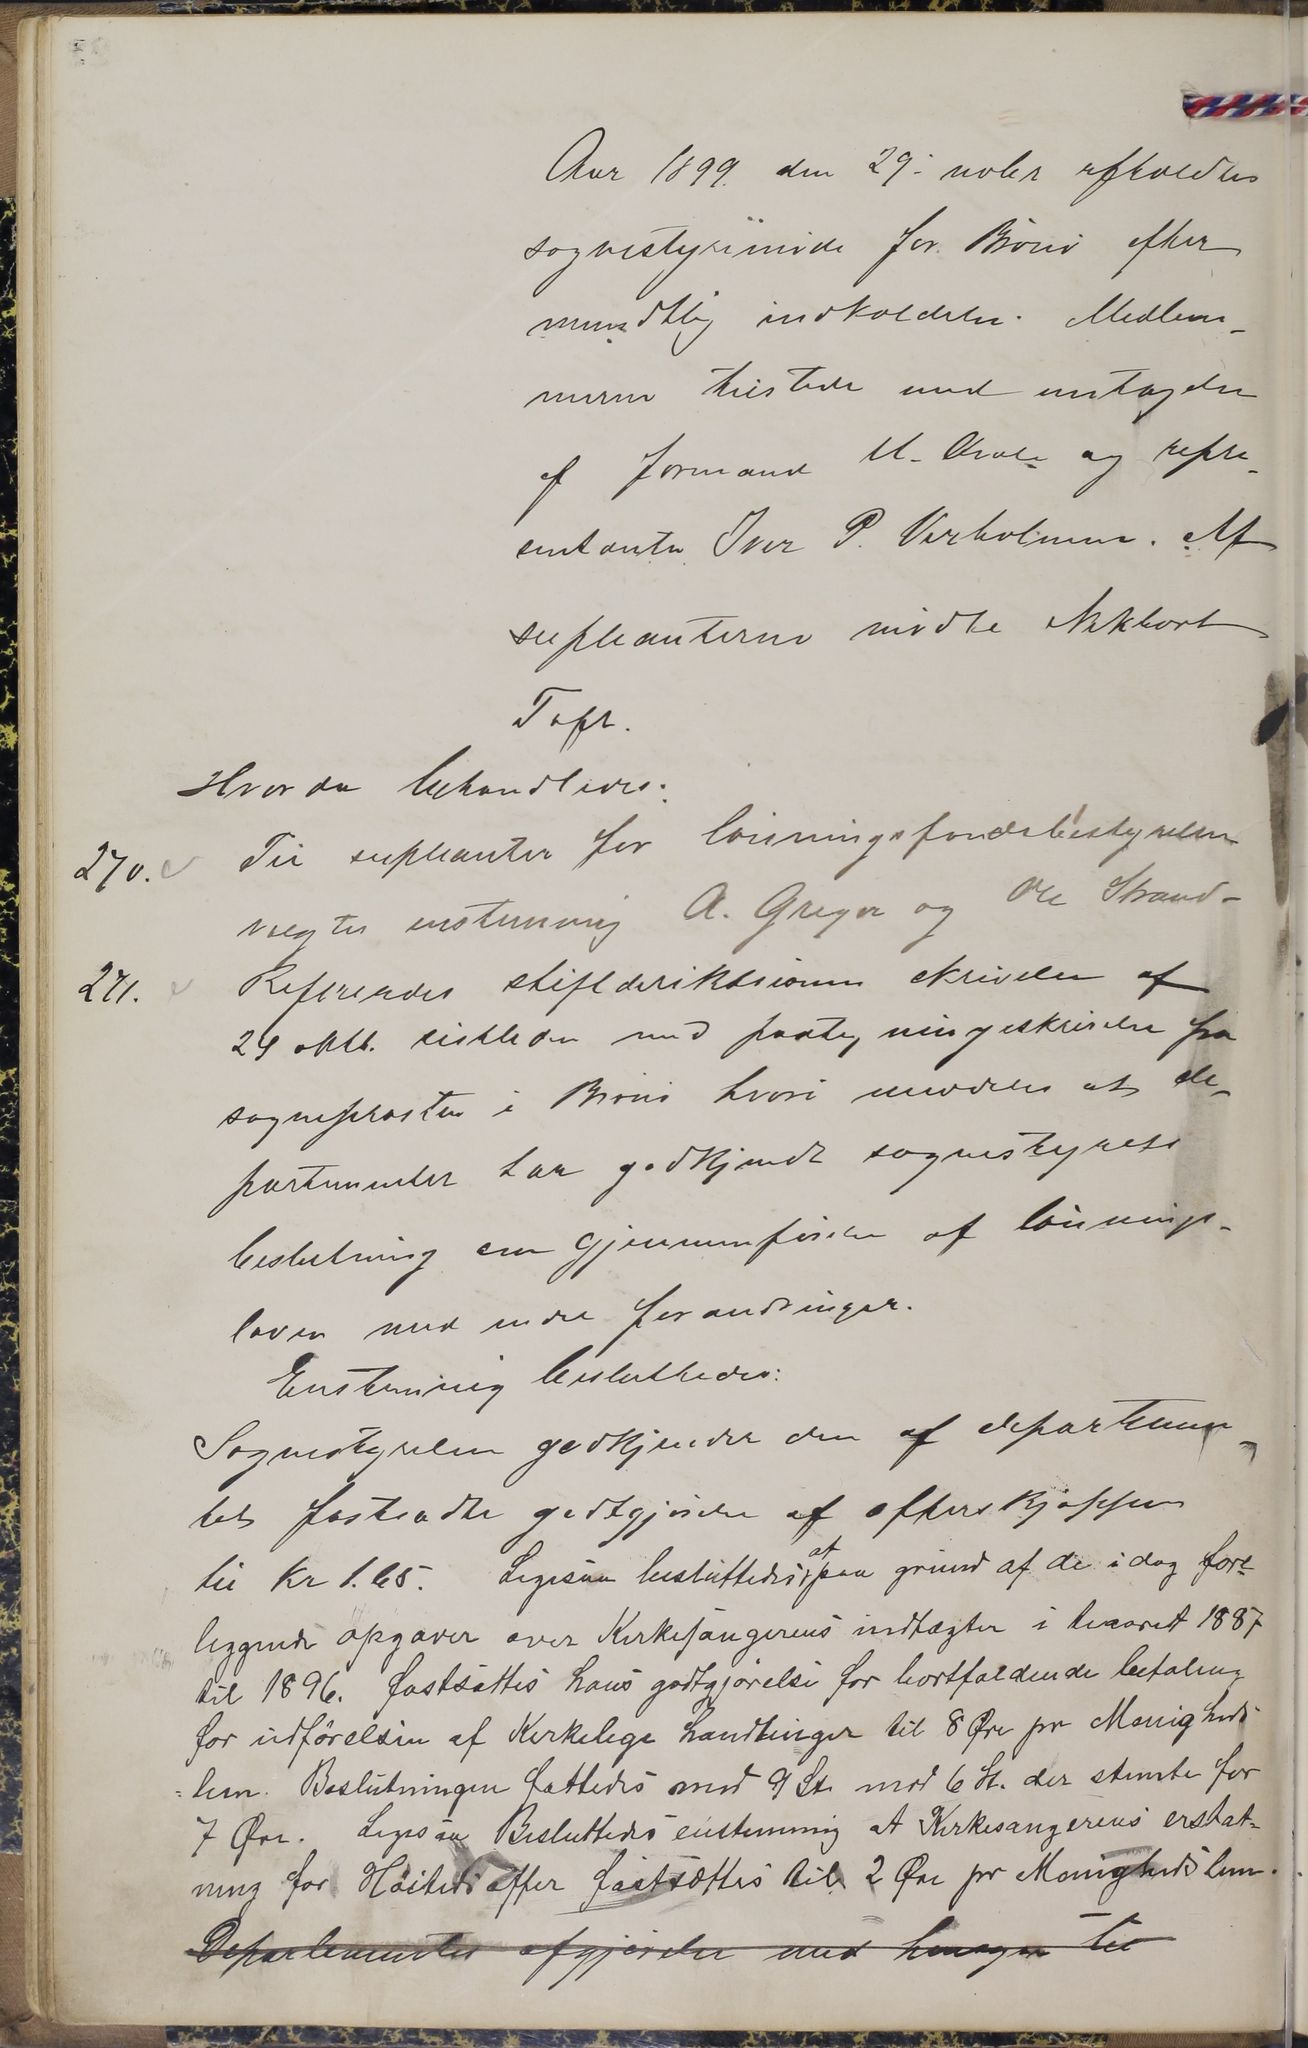 Aar 1899. den 29. nobr afholdtes
sognestyrimöde for Brönö efter
mundtlig indkaldelse. Medlem-
merne tilstede med untagelse
af formand og repre-
sentanten Iver P. Verholmen. Af
supleanterne mödte Nikkart
Toft.
Hvor da behandledes:
270. Til supleanter for lönningsfondsbestyrelsen
valgtes enstemmig A. Greger og Ole Strand-
271. Refereredes stiftderiktionens skrivelse af
24 oktb. sistleden med paategningsskrivelse fra
sogneprosten i Brönö hvori meddeles at de-
partementet har godkjendt sognestyrets
beslutning om gjennemförelse af lönnings-
loven med endel forandringer.
Enstemmig besluttedes:
Sognestyrelsen godkjender den af departemen-
tet fastsadte godtgjörelse af efterskjæppen
til Kr 1.65. Ligesaa besluttedes at paa grund af de i dag fore-
liggende opgaver over Kirkesangerens indtægter i tiaaret 1887
til 1896. fastsättes hans godtgjörelse for bortfaldende betaling
for udförelsen af Kirkelege handlinger til 8 Öre pr Menigheds-
=lem. Beslutningen fattedes med 9 St. mod 6 St. der stemte for
7 Öre. Ligesaa Besluttedes enstemmig at Kirkesangerens erstat-
ning for Höitidsoffer fastsættes til 2 Öre pr Menighedslem.
Departementets afgjörelse med hensyn til